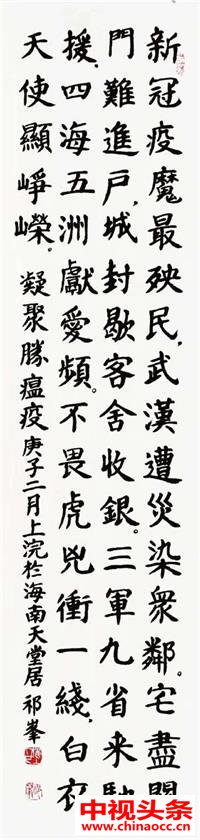 新冠疫魔最殃民,武漢遭災染衆鄰。宅盡
門難進戶,城封歇客舍收銀。三軍九省来馳
援,四海五洲獻愛頻。不畏虎兕衝一綫,白衣
天使顯崢嶸。凝聚勝瘟疫庚子二月上浣於海南天堂居祁峯
中视头条
www.chinaocc.cn